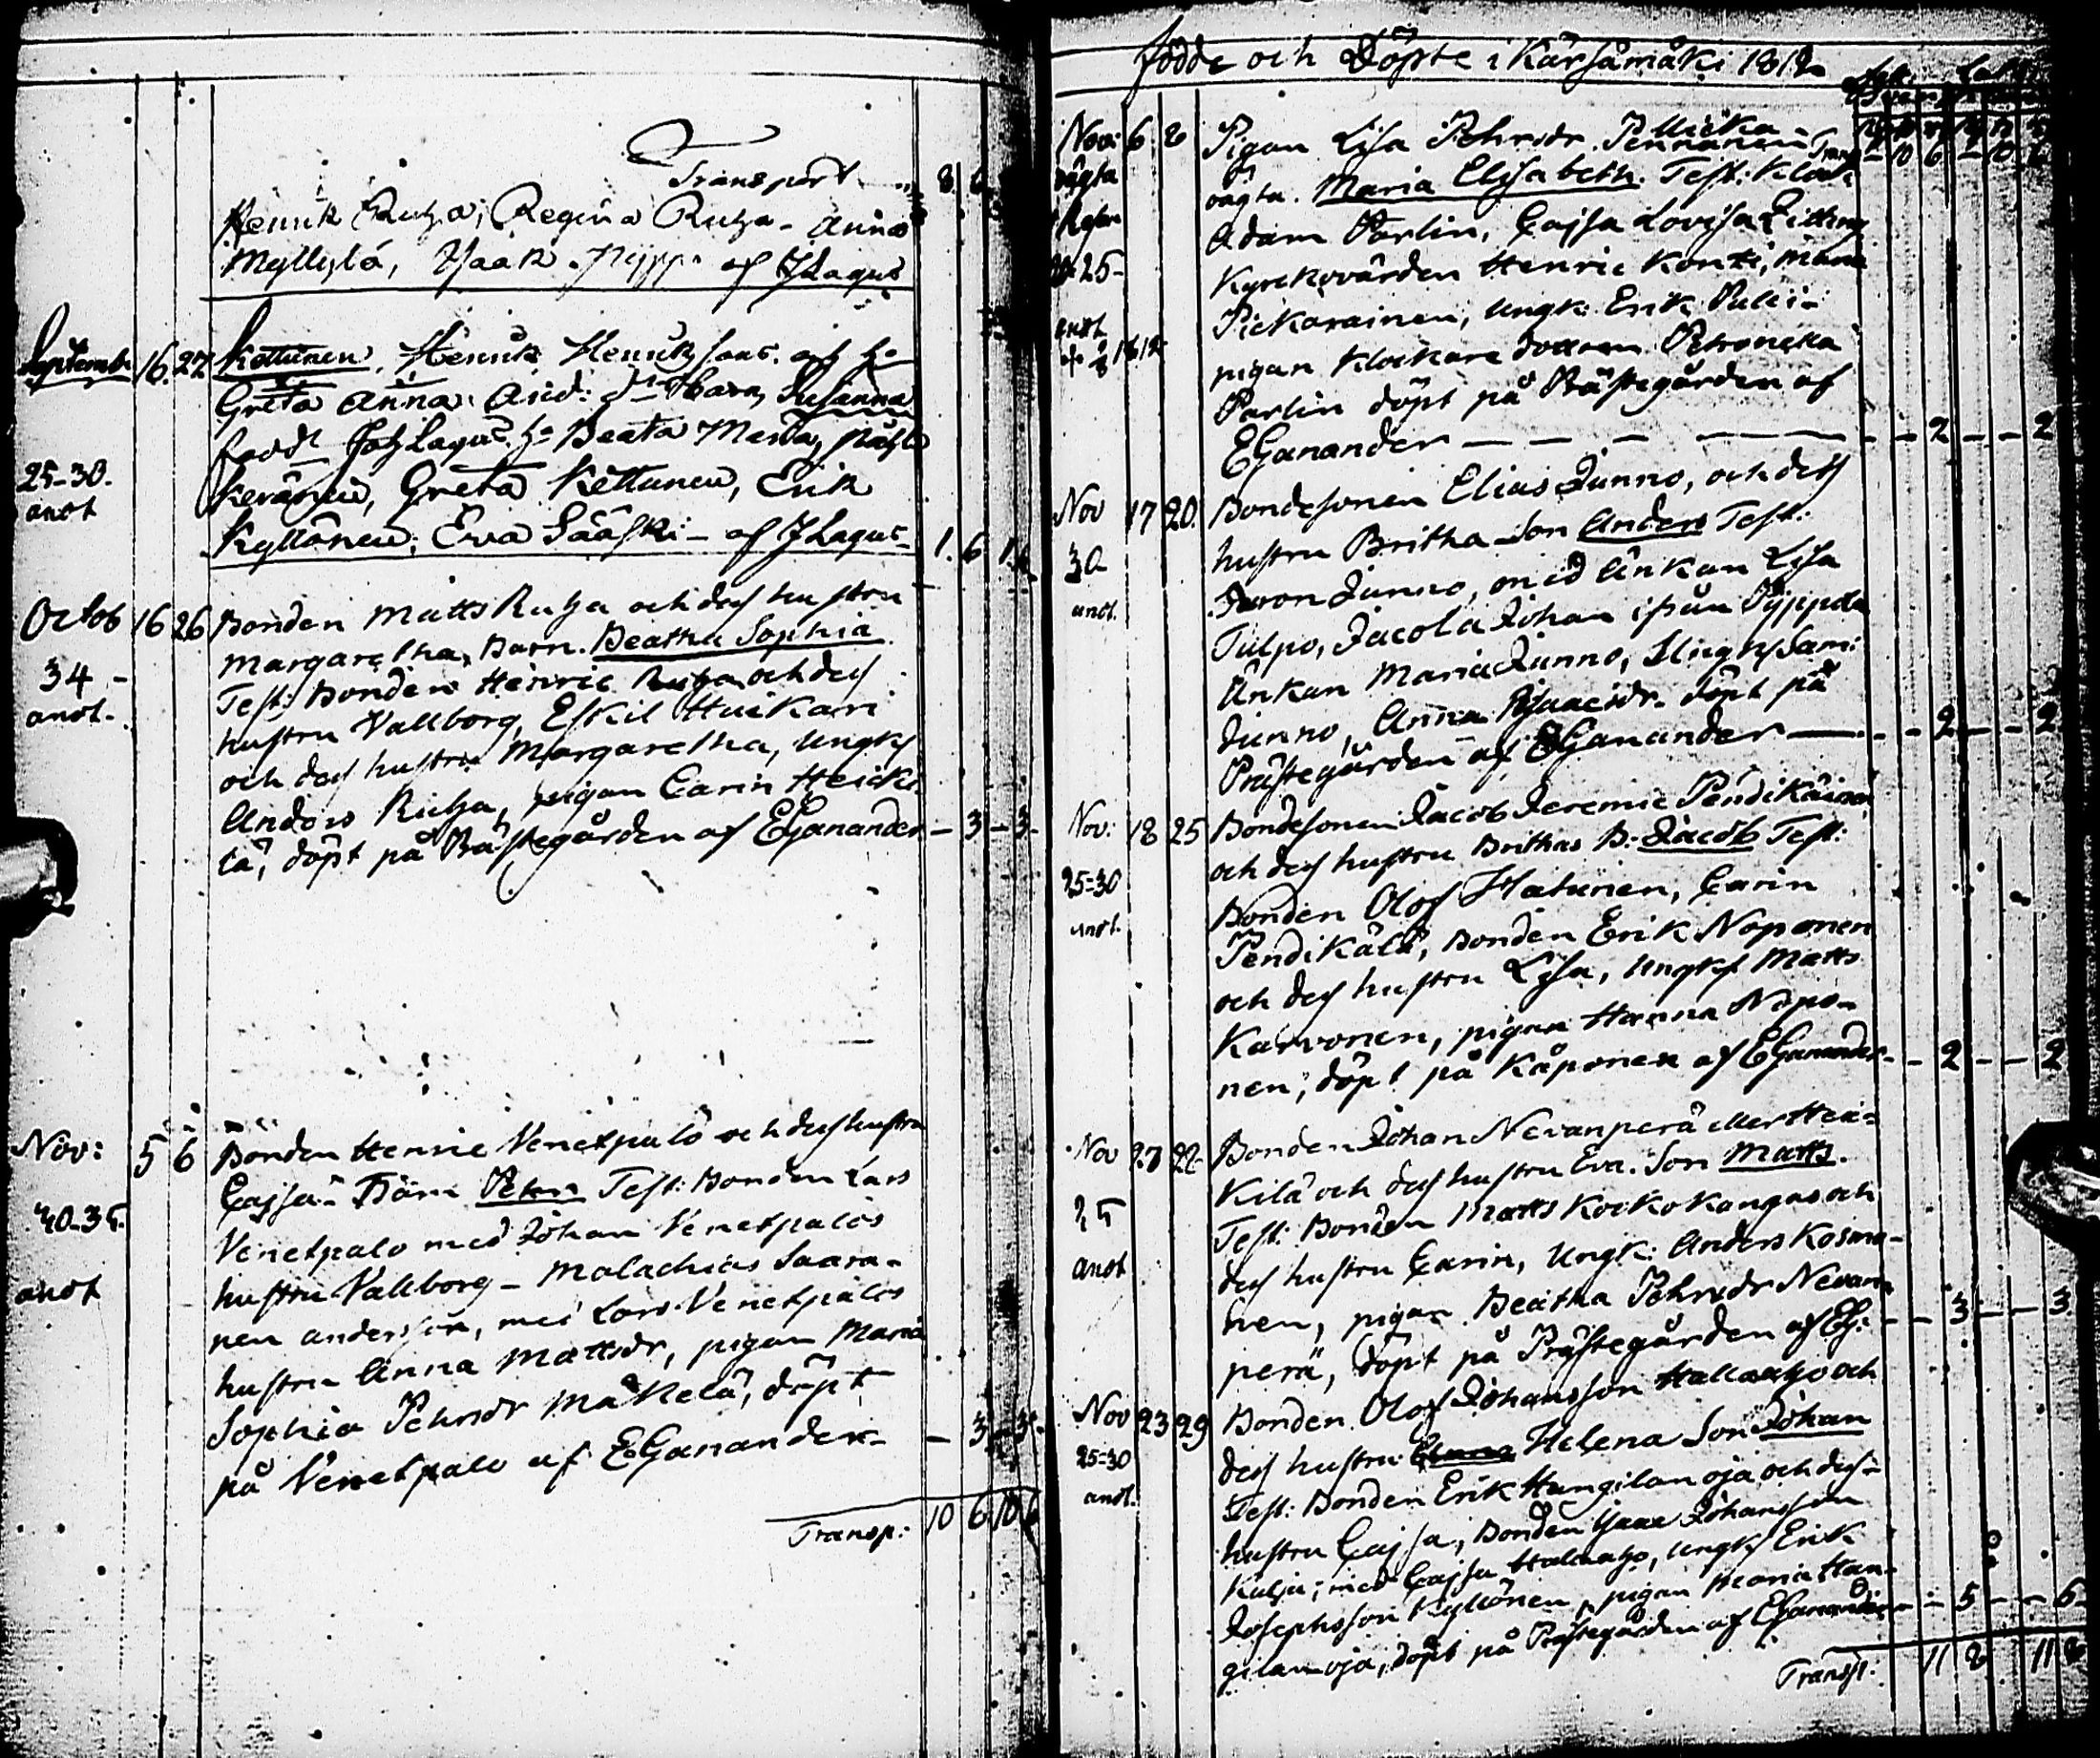 Transport 8 6
Henrik Rutza, Regina Rutza - Anna
Myllylä, Isaak Pijpp. af JLagus
Septemb. 16. 27 Kettunen, Henrik Henrikssons och h:
Greta Anna And: dr Barn, Susanna
född Joh Lagus. h: Beata
25-30. Keränen, Greta Kettunen, Erik
anot
Kyllönen, Eva Sääski - af JLagus 1. 6 1.
Octob 16 26 Bonden Matts Rutza och dess hustru
Margaretha, Barn. Beatha Sophia.
34 - Test: Bonden Henric Rutza och dess
anot. hustru Vallborg, Eskil Huikari
och dess hustru Margaretha, Ungk
Anders Rutza, pigan Carin Heicki
lä, döpt på Prästegården af EGanander - 3 - 3 -
Nov: 5 6 Bonden Henric Venetpalo och dess hustru
Cajsa - Barn Test: Bonden Lars
30-35. Venetpalo med Johan Venetpalos
hustru Vallborg - Malachias Saara-
anot nen andersson, med Lars Venetpalos
hustru Anna Mattsdr, pigan Maria
Sophia Pehrsdr Mäkelä, döpt
på Venetpalo af EGanander - - 3 - 3 -
Transp: 10 6 10 6
födde och Döpte i Kärsämäki 1812
Nov: 6 8 Pigan Lisa Pehrsdr Pennanen - Transp - 10 6 - 10 6
oägta oägta. Maria Elisabeth. Test: Klock
Adam Parlin, Cajsa Lovisa
25 - Kyrkovärden Henric Konti, Maria
Pickarainen, Ungk: Erik
anot 1812 pigan Klockare dottren Petronella
Parlin döpt på Prästegården af
EGanander - - - - 2 - - 2
Nov 17 20. Bondesonen Elias Junno, och dess
30 hustru Britha Son Anders Test:
anot. Junno, med Änkan Lisa
Tulpo, Jacola Johan ifrån Pyppola
Änkan Maria Junno, Sam:
Junno, Anna Isaacsdr. döpt på
Prästegården af EGanander - - - 2 - - 2
Nov: 18 25 Bondesonen Jacob Jeremie Pendikäinen
och dess hustru Brithas B: Jacob Test:
25-30 Bonden Olof Hatunen, Carin
anot. Pendikälä, Bonden Erik Noponen
och dess hustru Lisa, Ungk Matts
Karvonen, pigan Hanna Nopo-
nen, döpt på Kåponen af EGanander - - 2 - - 2
Nov 27 22 Bonden Johan Nevanperä eller Hei-
kilä och dess hustru Eva. Son Matts.
25 Test: Bonden Matts Kockokangas och
anot dess hustru Carin, Ungk: Anders Kosma-
nen, pigan Beatha Pehrsdr Nevan-
perä, döpt på Prästegården af EG: - - 3 - - 3
Nov 23 29 Bonden Olof Johansson Hallaaho och
dess hustru Helena Son Johan
25-30 Test: Bonden Erik Hangilanoja och dess
anot. hustru Cajsa, Bonden Isaac Johansson
Kälja, med Cajsa Halaaho, ungk Erik
Josephsson Kyllönen, pigan Maria Han-
gilanoja, döpt på Prästegården af EGanander - - 5 - - 5
Transp: 11 8 11 8